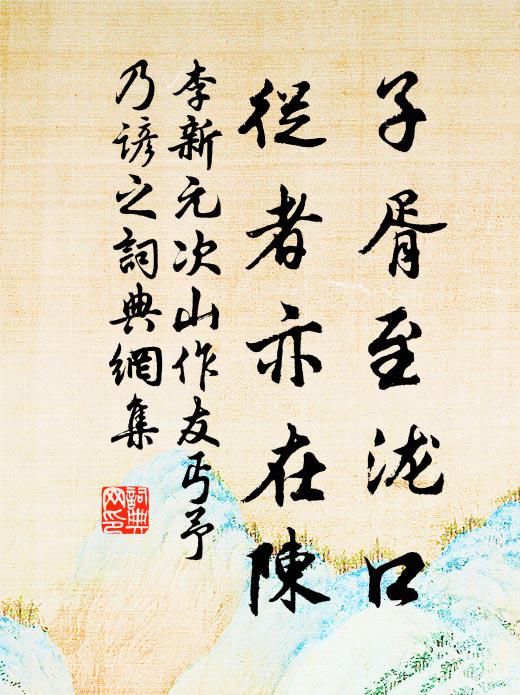 子胥至泷口
從者亦在陳
李新元次山作友丐予
乃諺之詞典網集
詞典
网印